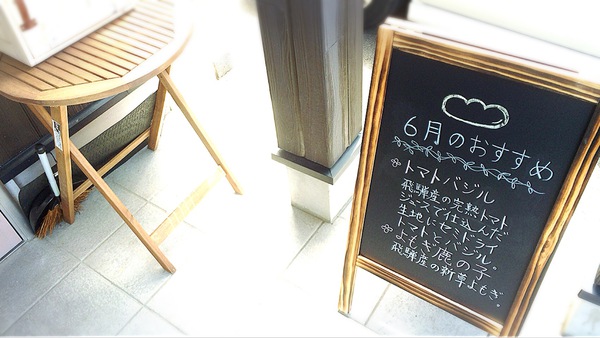 6月のおすすめ
トマトバジル
飛騨産の完熟トマト
ジュースで仕込んだ
生地にセミドライ
トマトとバジル。
よもぎ鹿の子
飛騨産の新草よもぎ。